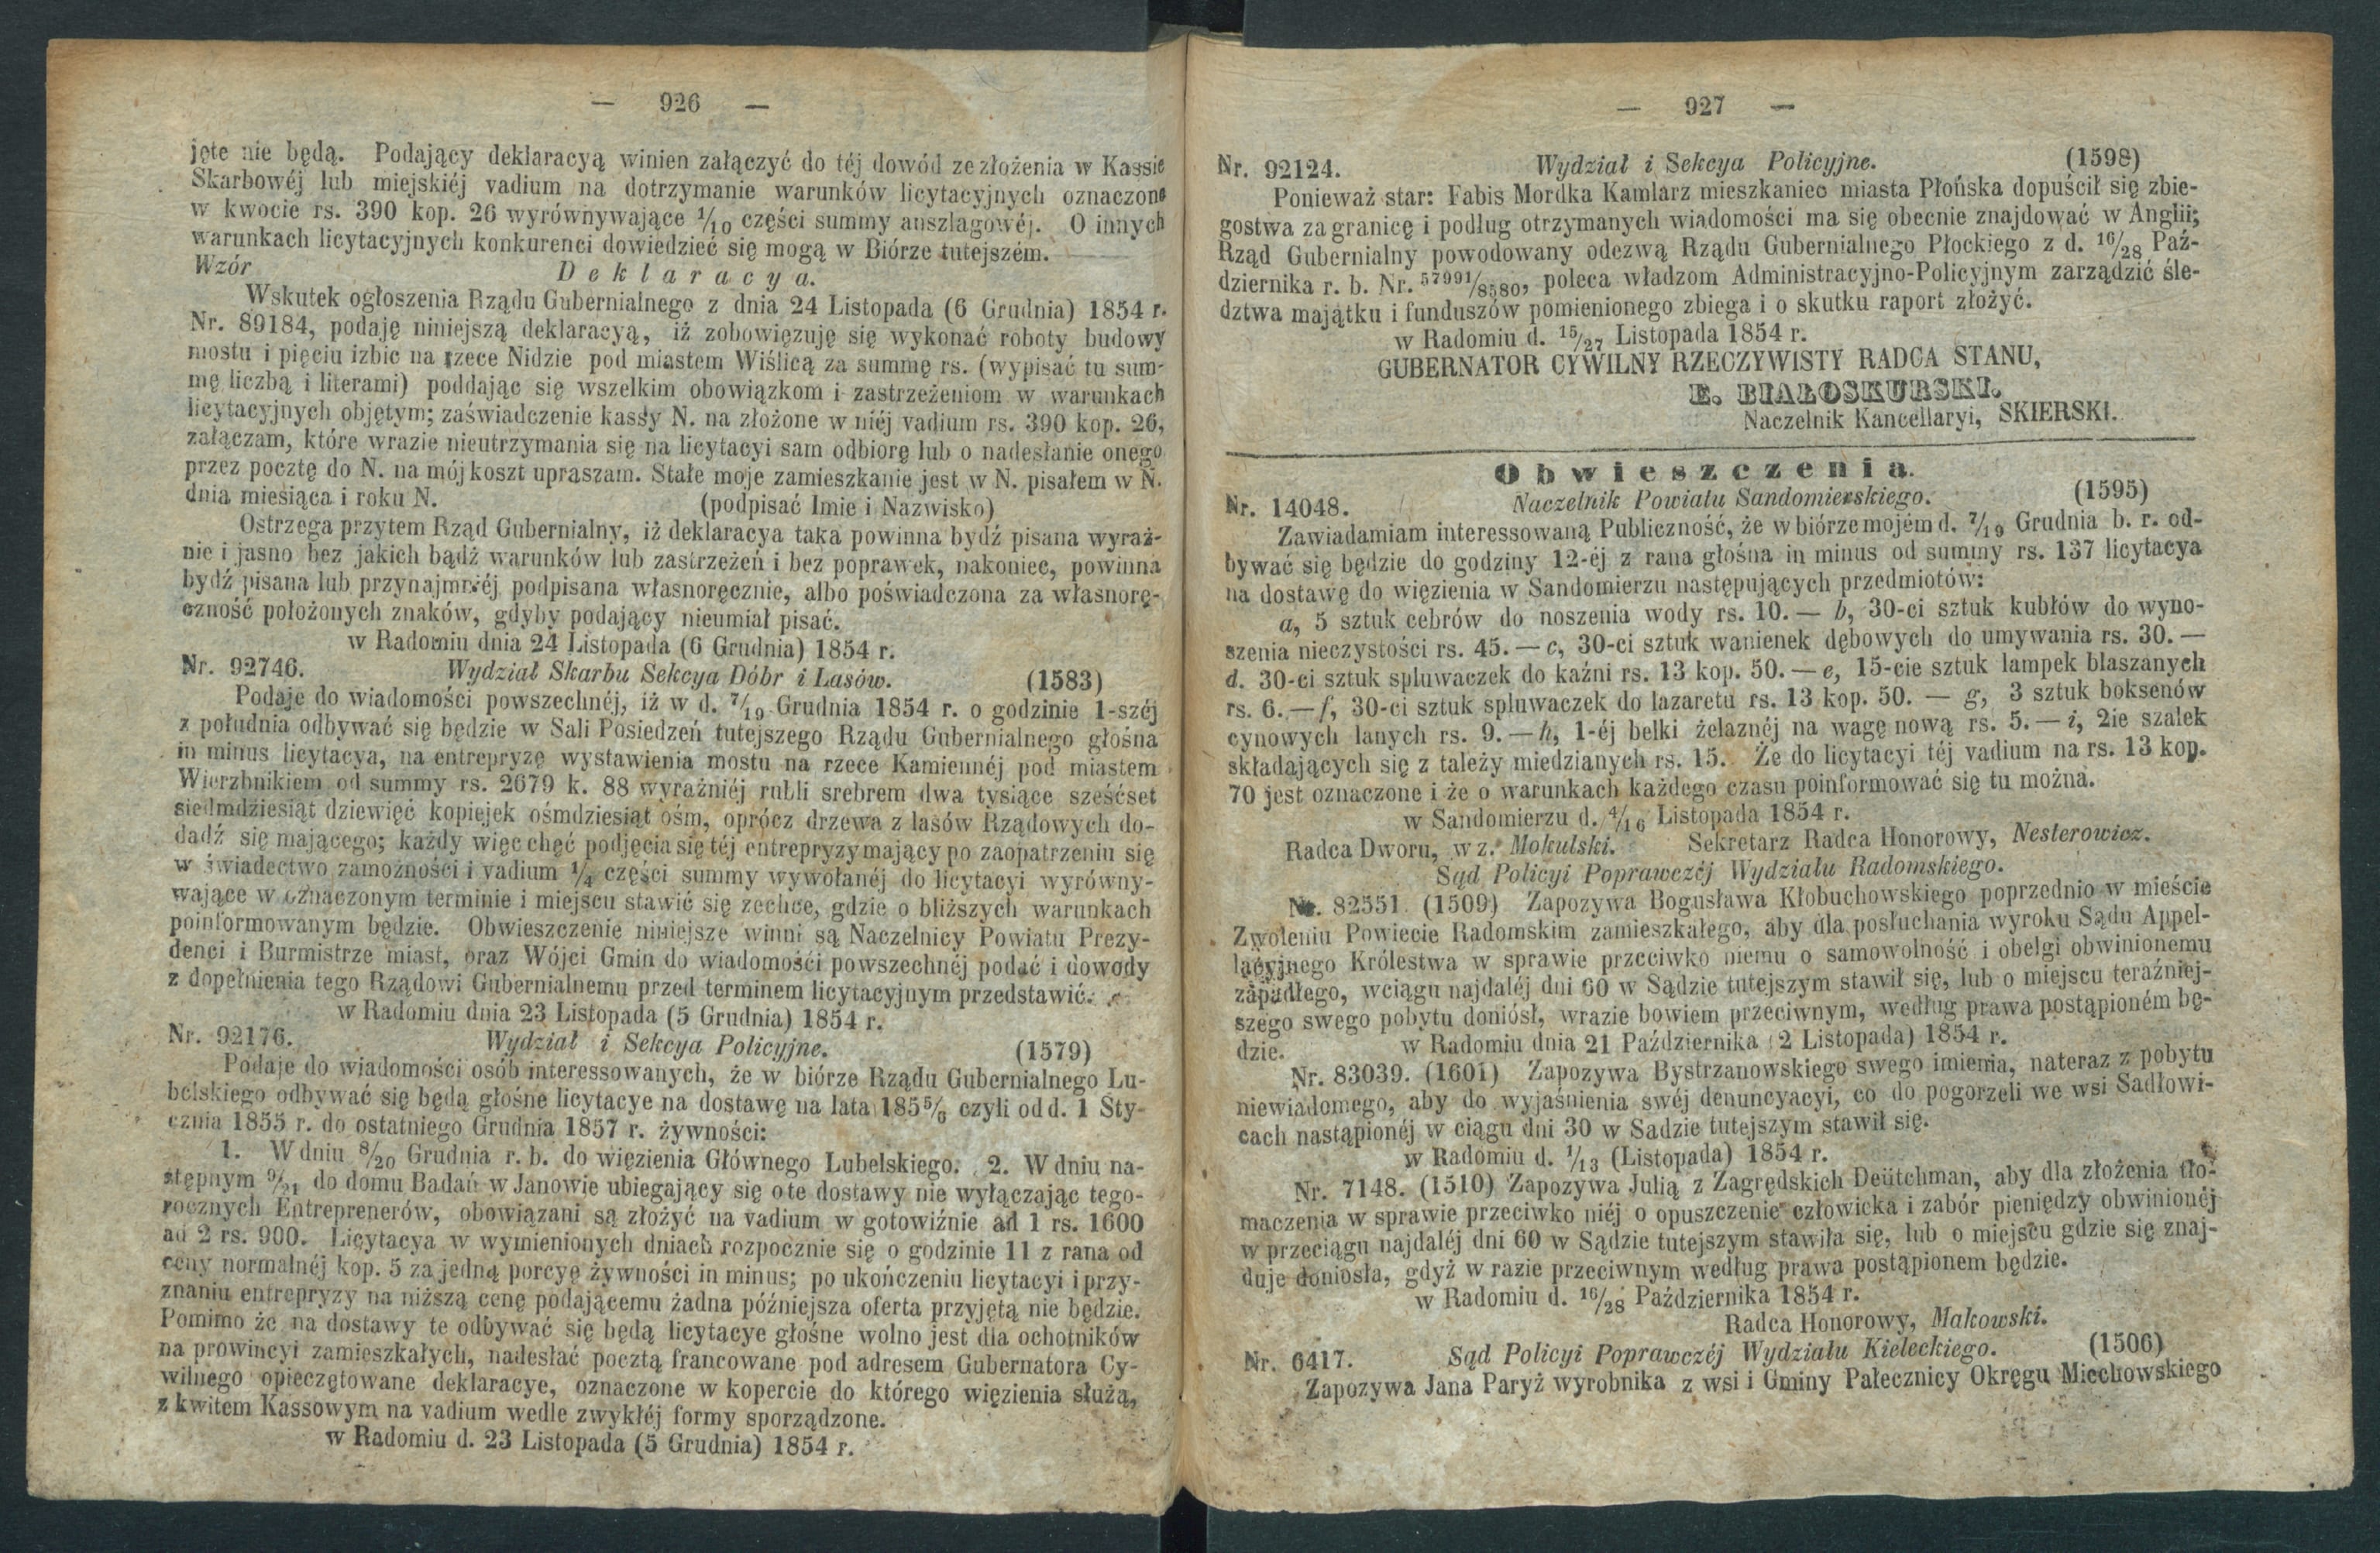 — 926 —
jęte nie będą. Podający deklaracyą winien załączyć do téj dowód ze złożenia w Kassie
Skarbowéj lub miejskiéj vadium na dotrzymanie warunków licytacyjnych oznaczone
w kwocie rs. 390 kop. 26 wyrównywające 1/10 części summy anszlagowéj. O innych
warunkach licytacyjnych konkurenci dowiedzieć się mogą w Biórze tutejszém.
Wzór Deklaracya.
Wskutek ogłoszenia Rządu Gubernialnego z dnia 24 Listopada (6 Grudnia) 1854 r.
Nr. 89184, podaję niniejszą deklaracyą, iż zobowięzuję się wykonać roboty budowy
mostu i pięciu izbic na rzece Nidzie pod miastem Wiślicą za summę rs. (wypisać tu sum-
mę liczbą i literami) poddając się wszelkim obowiązkom i zastrzeżeniom w warunkach
licytacyjnych objętym; zaświadczenie kassy N. na złożone w niéj vadium rs. 390 kop. 26,
załączam, które wrazie nieutrzymania się na licytacyi sam odbiorę lub o nadesłanie onego
przez pocztę do N. na mój koszt upraszam. Stałe moje zamieszkanie jest w N. pisałem w N.
dnia miesiąca i roku N. (podpisać Imie i Nazwisko)
Ostrzega przytem Rząd Gubernialny, iż deklaracya taka powinna bydź pisana wyraź-
nie i jasno bez jakich bądź warunków lub zastrzeżeń i bez poprawek, nakoniec, powinna
bydź pisana lub przynajmniéj podpisana własnoręcznie, albo poświadczona za własnorę-
czność położonych znaków, gdyby podający nieumiał pisać.
w Radomiu dnia 24 Listopada (6 Grudnia) 1854 r.
Nr. 92746. Wydział Skarbu Sekcya Dóbr i Lasów. (1583)
Podaje do wiadomości powszechnéj, iż w d. 7/19 Grudnia 1854 r. o godzinie 1-széj
z południa odbywać się będzie w Sali Posiedzeń tutejszego Rządu Gubernialnego głośna
in minus licytacya, na entrepryzę wystawienia mostu na rzece Kamiennéj pod miastem
Wierzbnikiem od summy rs. 2679 k. 88 wyraźniéj rubli srebrem dwa tysiące sześćset
siedmdziesiąt dziewięć kopiejek ośmdziesiąt ośm, oprócz drzewa z lasów Rządowych do-
dadź się mającego; każdy więc chęć podjęcia się téj entrepryzy mający po zaopatrzeniu się
w świadectwo zamożności i vadium 1/4 części summy wywołanéj do licytacyi wyrówny-
wające w oznaczonym terminie i miejscu stawić się zechce, gdzie o bliższych warunkach
poinformowanym będzie. Obwieszczenie niniejsze winni są Naczelnicy Powiatu Prezy-
denci i Burmistrze miast, oraz Wójci Gmin do wiadomości powszechnéj podać i dowody
z dopełnienia tego Rządowi Gubernialnemu przed terminem licytacyjnym przedstawić.
w Radomiu dnia 23 Listopada (5 Grudnia) 1854 r.
Nr. 92176. Wydział i Sekcya Policyjne. (1579)
Podaje do wiadomości osób interessowanych, że w biórze Rządu Gubernialnego Lu-
belskiego odbywać się będą głośne licytacye na dostawę na lata 1855/6 czyli od d. 1 Sty-
cznia 1855 r. do ostatniego Grudnia 1857 r. żywności:
1. W dniu 8/20 Grudnia r. b. do więzienia Głównego Lubelskiego. 2. W dniu na-
stępnym 9/21 do domu Badań w Janowie ubiegający się o te dostawy nie wyłączając tego-
rocznych Entreprenerów, obowiązani są złożyć na vadium w gotowiźnie ad 1 rs. 1600
ad 2 rs. 900. Licytacya w wymienionych dniach rozpocznie się o godzinie 11 z rana od
ceny normalnéj kop. 5 za jedną porcyę żywności in minus; po ukończeniu licytacyi i przy-
znaniu entrepryzy na niższą cenę podającemu żadna późniejsza oferta przyjętą nie będzie.
Pomimo że na dostawy te odbywać się będą licytacye głośne wolno jest dla ochotników
na prowincyi zamieszkałych, nadesłać pocztą francowane pod adresem Gubernatora Cy-
wilnego opieczętowane deklaracye, oznaczone w kopercie do którego więzienia służą,
z kwitem Kassowym na vadium wedle zwykłéj formy sporządzone.
w Radomiu d. 23 Listopada (5 Grudnia) 1854 r.
— 927 —
Nr. 92124. Wydział i Sekcya Policyjne. (1598)
Ponieważ star: Fabis Mordka Kamlarz mieszkaniec miasta Płońska dopuścił się zbie-
gostwa za granicę i podług otrzymanych wiadomości ma się obecnie znajdować w Anglii;
Rząd Gubernialny powodowany odezwą Rządu Gubernialnego Płockiego z d. 16/28 Paź-
dziernika r. b. Nr. 57991/8580, poleca władzom Administracyjno-Policyjnym zarządzić śle-
dztwa majątku i funduszów pomienionego zbiega i o skutku raport złożyć.
w Radomiu d. 15/27 Listopada 1854 r.
GUBERNATOR CYWILNY RZECZYWISTY RADCA STANU,
E. BIAŁOSKURSKI.
Naczelnik Kancellaryi, SKIERSKI.
Obwieszczenia.
Nr. 14048. Naczelnik Powiatu Sandomierskiego. (1595)
Zawiadamiam interessowaną Publiczność, że w biórze mojém d. 7/19 Grudnia b. r. od-
bywać się będzie do godziny 12-éj z rana głośna in minus od summy rs. 137 licytacya
na dostawę do więzienia w Sandomierzu następujących przedmiotów:
a, 5 sztuk cebrów do noszenia wody rs. 10. — b, 30-ci sztuk kubłów do wyno-
szenia nieczystości rs. 45. — c, 30-ci sztuk wanienek dębowych do umywania rs. 30. —
d. 30-ci sztuk spluwaczek do kaźni rs. 13 kop. 50. — e, 15-cie sztuk lampek blaszanych
rs. 6. — f, 30-ci sztuk spluwaczek do lazaretu rs. 13 kop. 50. — g, 3 sztuk boksenów
cynowych lanych rs. 9. — h, 1-éj belki żelaznéj na wagę nową rs. 5. — i, 2ie szalek
składających się z taleźy miedzianych rs. 15. Że do licytacyi téj vadium na rs. 13 kop.
70 jest oznaczone i że o warunkach każdego czasu poinformować się tu można.
w Sandomierzu d. 4/16 Listopada 1854 r.
Radca Dworu, w z. Mokulski. Sekretarz Radca Honorowy, Nesterowicz.
Sąd Policyi Poprawczéj Wydziału Radomskiego.
Nr. 82551. (1509) Zapozywa Bogusława Kłobuchowskiego poprzednio w mieście
Zwoleniu Powiecie Radomskim zamieszkałego, aby dla posłuchania wyroku Sądu Appel-
lacyjnego Królestwa w sprawie przeciwko niemu o samowolność i obelgi obwinionemu
zapadłego, wciągu najdaléj dni 60 w Sądzie tutejszym stawił się, lub o miejscu teraźniej-
szego swego pobytu doniósł, wrazie bowiem przeciwnym, według prawa postąpioném bę-
dzie. w Radomiu dnia 21 Października (2 Listopada) 1854 r.
Nr. 83039. (1601) Zapozywa Bystrzanowskiego swego imienia, nateraz z pobytu
niewiadomego, aby do wyjaśnienia swéj denuncyacyi, co do pogorzeli we wsi Sadłowi-
cach nastąpionéj w ciągu dni 30 w Sadzie tutejszym stawił się.
w Radomiu d. 1/13 (Listopada) 1854 r.
Nr. 7148. (1510) Zapozywa Julią z Zagrędskich Deütchman, aby dla złożenia tło-
maczenia w sprawie przeciwko niéj o opuszczenie człowieka i zabór pieniędzy obwinionéj
w przeciągu najdaléj dni 60 w Sądzie tutejszym stawiła się, lub o miejscu gdzie się znaj-
duje doniosła, gdyż w razie przeciwnym według prawa postąpionem będzie.
w Radomiu d. 16/28 Października 1854 r.
Radca Honorowy, Makowski.
Nr. 6417. Sąd Policyi Poprawczéj Wydziału Kieleckiego. (1506)
Zapozywa Jana Paryż wyrobnika z wsi i Gminy Pałecznicy Okręgu Miechowskiego